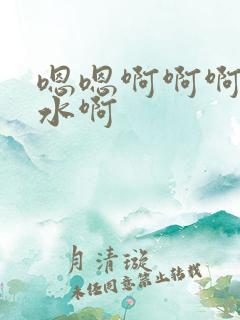 嗯嗯啊啊啊
水啊
月清璇
未经同意禁止转载